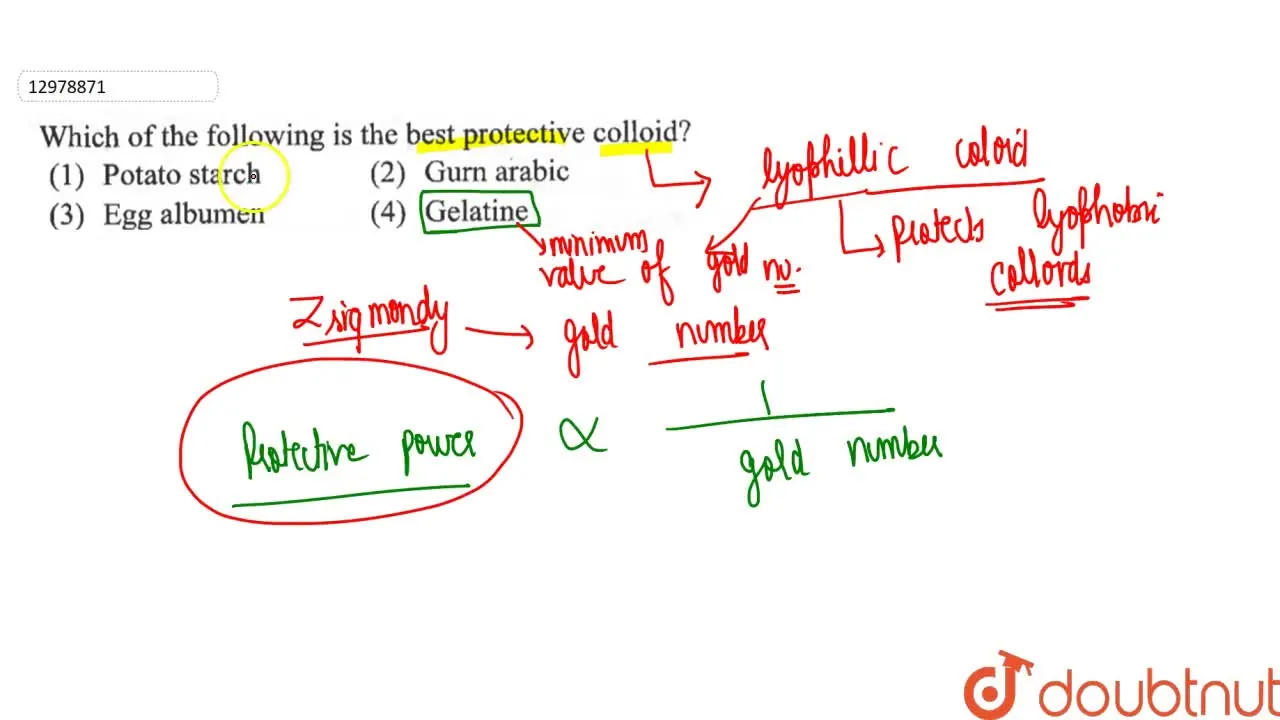 12978871
Which of the following is the best protective colloid?
(1) Potato starch (2) Gurn arabic
(3) Egg albumen (4) Gelatine
lyophillic coloid
protects lyophobic
colloids
minimum
value of gold no.
Zsigmondy → gold number
Protective power ∝ 1
gold number
doubtnut